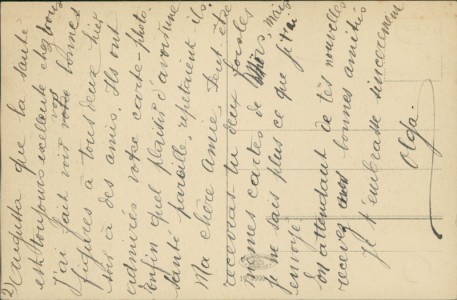 2) Augusta que la santé
est toujours excellente chez vous
J'ai fait voir vos bonnes
figures à tous deux hier
soir à des amis. Ils ont
admirés votre carte-photo.
Enfin quel plaisir d'avoir une
santé pareille, répétaient-ils.
Ma chère amie, Peut être
recevras-tu deux fois les
mêmes cartes de mais
je ne sais plus ce que j'ai
envoyé.
En attendant de tes nouvelles
recevez mes bonnes amitiés
Je t'embrasse sincèrement
Olga.